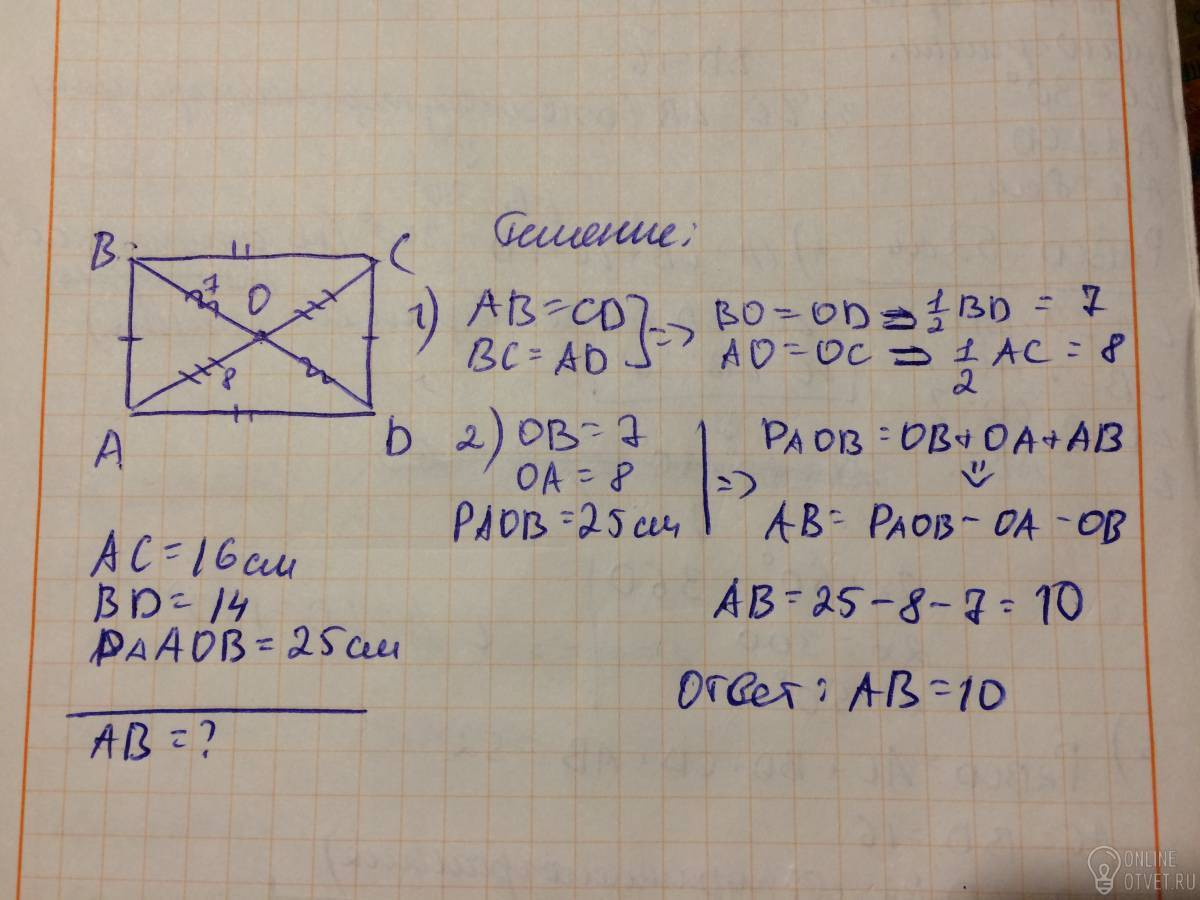 Решение:
B C
7 O
8
A D
1) AB = CD
BC = AD
=> BO = OD = 1/2 BD = 7
AO = OC = 1/2 AC = 8
2) OB = 7
OA = 8
PAOB = 25 см
=> PAOB = OB + OA + AB
=>
AB = PAOB - OA - OB
AB = 25 - 8 - 7 = 10
Ответ: AB = 10
AC = 16 см
BD = 14
P△AOB = 25 см
AB = ?
ONLINE
OTVET.RU